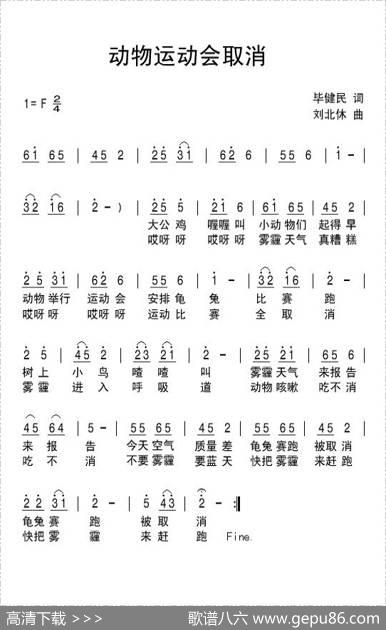 动物运动会取消
1=F 2/4
毕健民 词
刘北休 曲
6i 65 | 45 2 | 25 31 | 62 6 | 55 6 | i - |
32 16 | 2 - ) | 25 25 | 221 | 61 61 | 45 2 |
大公鸡 喔喔叫 小动物们 起得早
哎呀呀 哎呀呀 雾霾天气 真糟糕
25 31 | 62 6 | 55 6 | i - | 32 16 | 2 - |
动物举行 运动会 安排龟 兔 比赛 跑
哎呀呀 哎呀呀 运动比 赛 全取 消
2 5 | 45 2 | 23 21 | 2 - | 55 55 | 65 6 |
树上 小鸟 喳喳 叫 雾霾天气 来报告
雾霾 进入 呼吸 道 动物咳嗽 吃不消
45 64 | 5 - | 55 65 | 45 2 | 55 65 | 45 2 |
来报 告 今天空气 质量差 龟兔赛跑 被取消
吃不 消 不要雾霾 要蓝天 快把雾霾 来赶跑
22 31 | 2 - | 5 43 | 2 - :‖
龟兔赛 跑 被取 消
快把雾 霾 来赶 跑 Fine.
高清下载 >>>
歌谱八六 www.gepu86.com